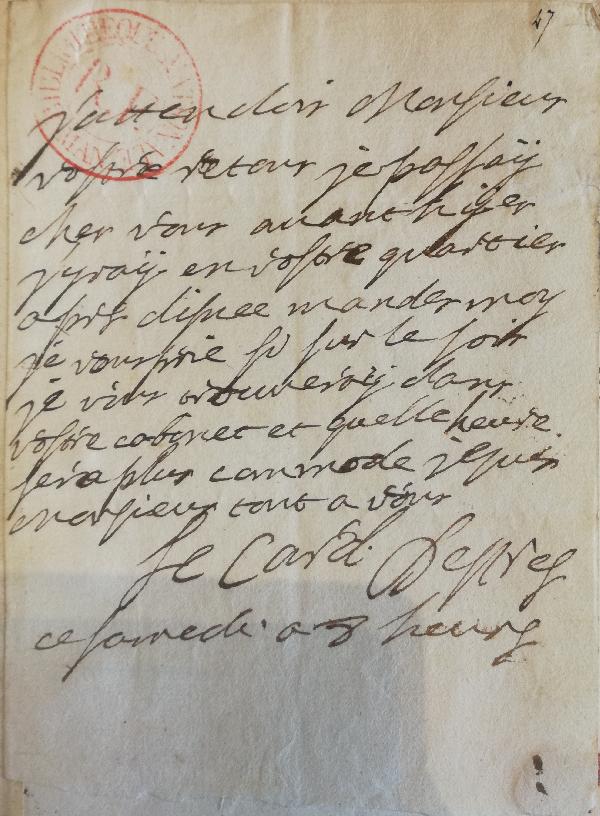 47
BIBLIOTHEQUE NATIONALE
MAN
R F
j'attendois Monsieur
vostre retour je passay
cher vous auant hyer
j'yray en vostre quartier
apres disnee mander moy
je vous prie si sur le soir
je vous trouveray dans
vostre cabinet et quelle heure
sera plus commode je suis
monsieur tout a vous
le Card. Destrees
ce samedi a 8 heures